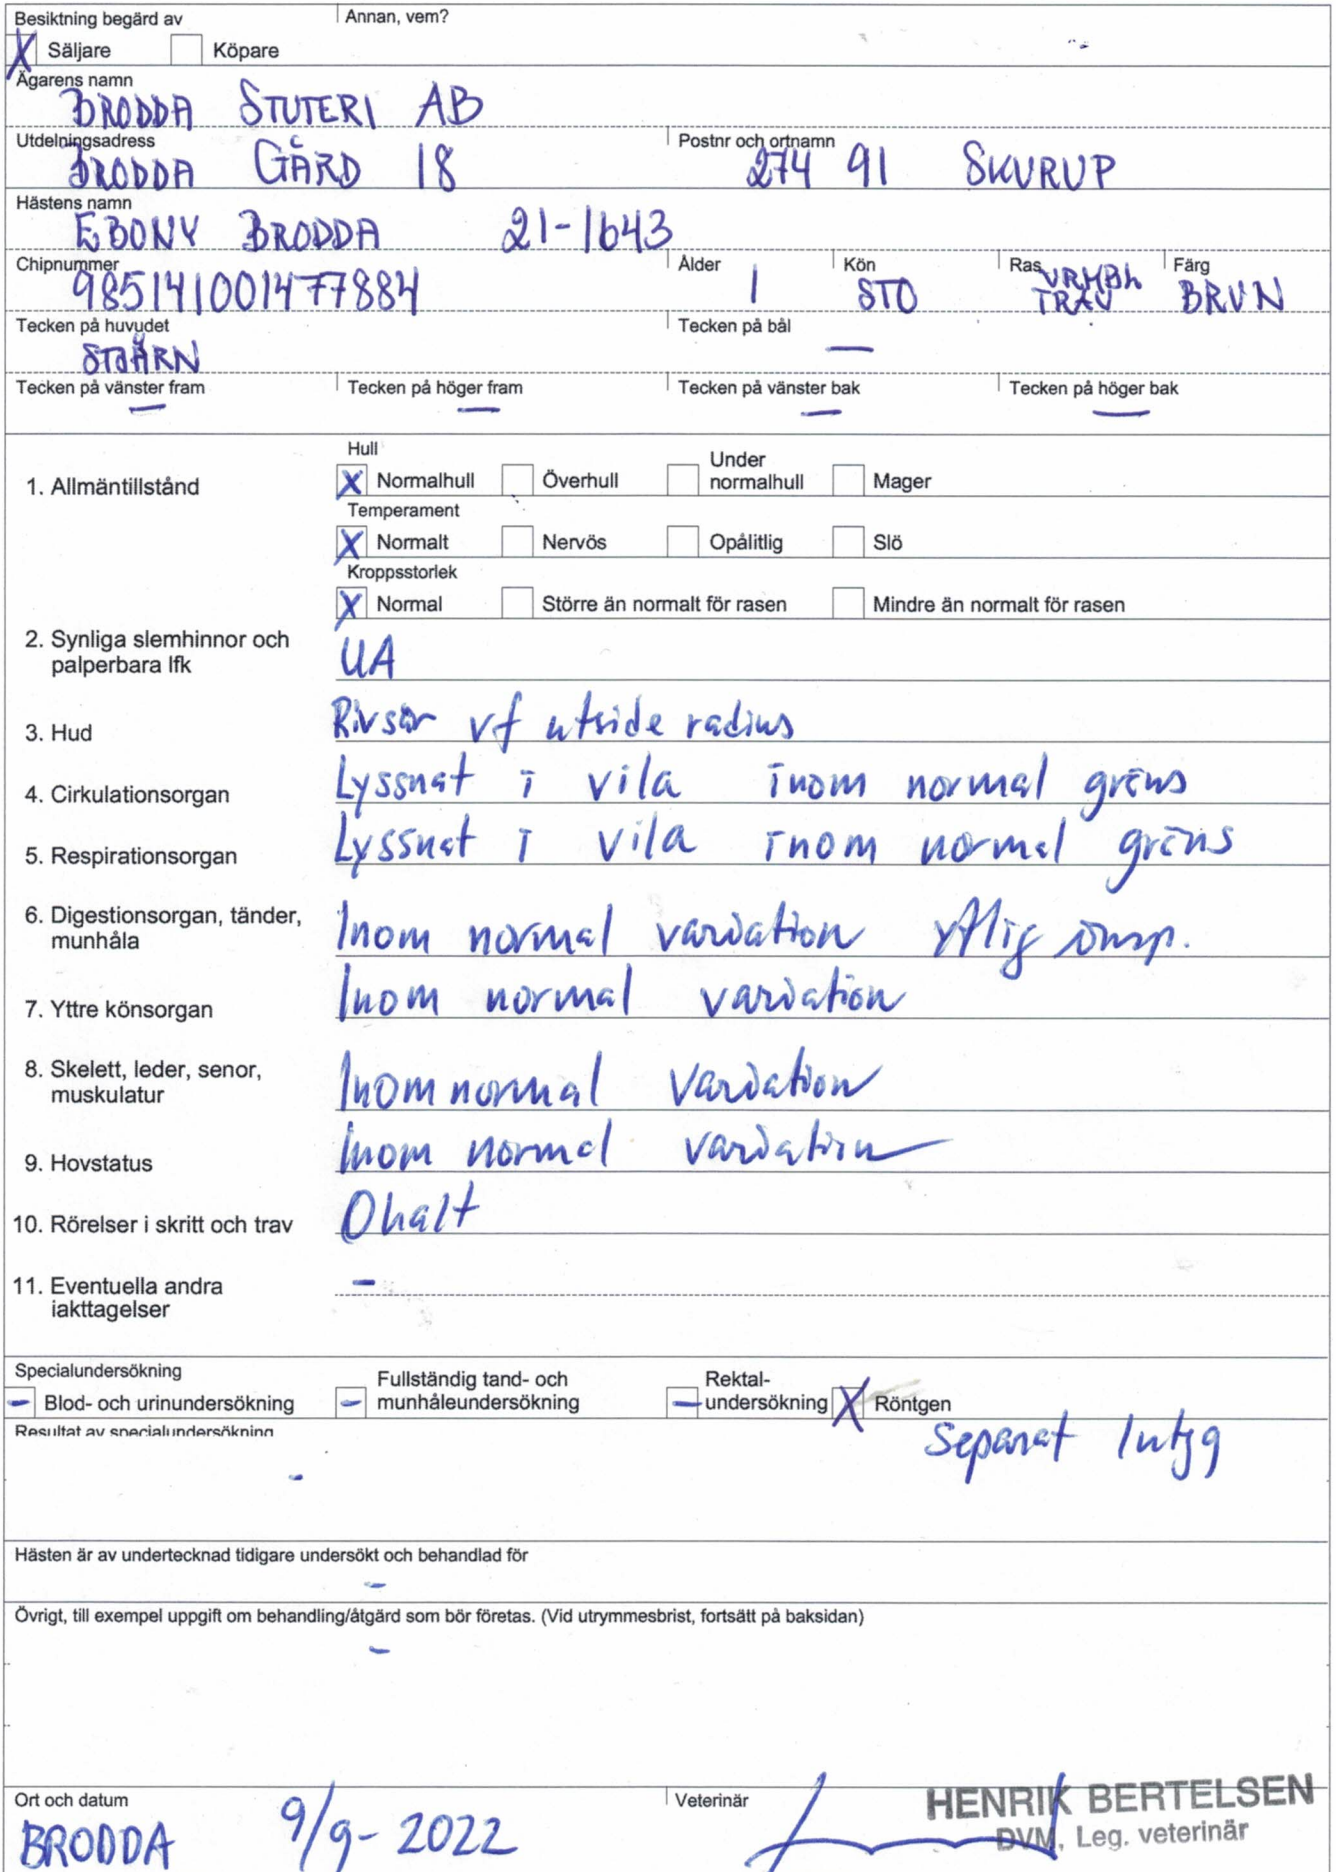 Besiktning begärd av Annan, vem?
X Säljare Köpare
Ägarens namn
BRODDA STUTERI AB
Utdelningsadress Postnr och ortnamn
BRODDA GÅRD 18 274 91 SKURUP
Hästens namn
EBONY BRODDA 21-1643
Chipnummer Ålder Kön Ras Färg
985141001477884 1 STO VRMBL TRAV BRUN
Tecken på huvudet Tecken på bål
STJÄRN —
Tecken på vänster fram Tecken på höger fram Tecken på vänster bak Tecken på höger bak
— — — —
Hull
1. Allmäntillstånd X Normalhull Överhull Under normalhull Mager
Temperament
X Normalt Nervös Opålitlig Slö
Kroppsstorlek
X Normal Större än normalt för rasen Mindre än normalt för rasen
2. Synliga slemhinnor och
palperbara lfk UA
3. Hud Rivsår vf utside radius
4. Cirkulationsorgan Lyssnat i vila inom normal gräns
5. Respirationsorgan Lyssnat i vila inom normal gräns
6. Digestionsorgan, tänder,
munhåla Inom normal variation ytlig insp.
7. Yttre könsorgan Inom normal variation
8. Skelett, leder, senor,
muskulatur Inom normal variation
9. Hovstatus Inom normal variation
10. Rörelser i skritt och trav Ohalt
11. Eventuella andra
iakttagelser –
Specialundersökning
– Blod- och urinundersökning – Fullständig tand- och munhåleundersökning – Rektal-undersökning X Röntgen
Resultat av specialundersökning Separat Intyg
–
Hästen är av undertecknad tidigare undersökt och behandlad för
–
Övrigt, till exempel uppgift om behandling/åtgärd som bör företas. (Vid utrymmesbrist, fortsätt på baksidan)
–
Ort och datum Veterinär
BRODDA 9/9-2022 HENRIK BERTELSEN
DVM, Leg. veterinär